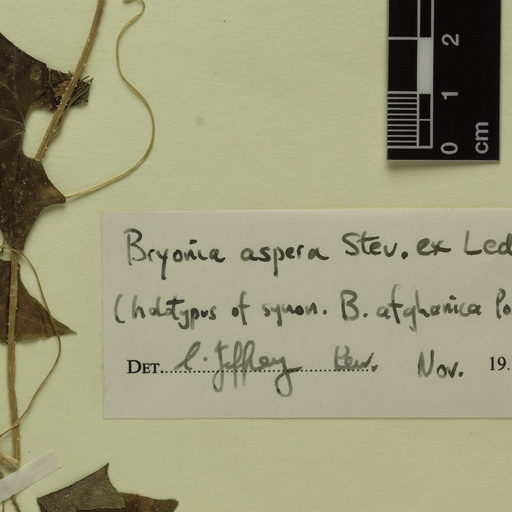 Bryonia aspera Stev. ex Led
(holotypus of synon. B. afghanica Po
DET. C. Jeffrey Kew. Nov. 19.
2
1
0
cm